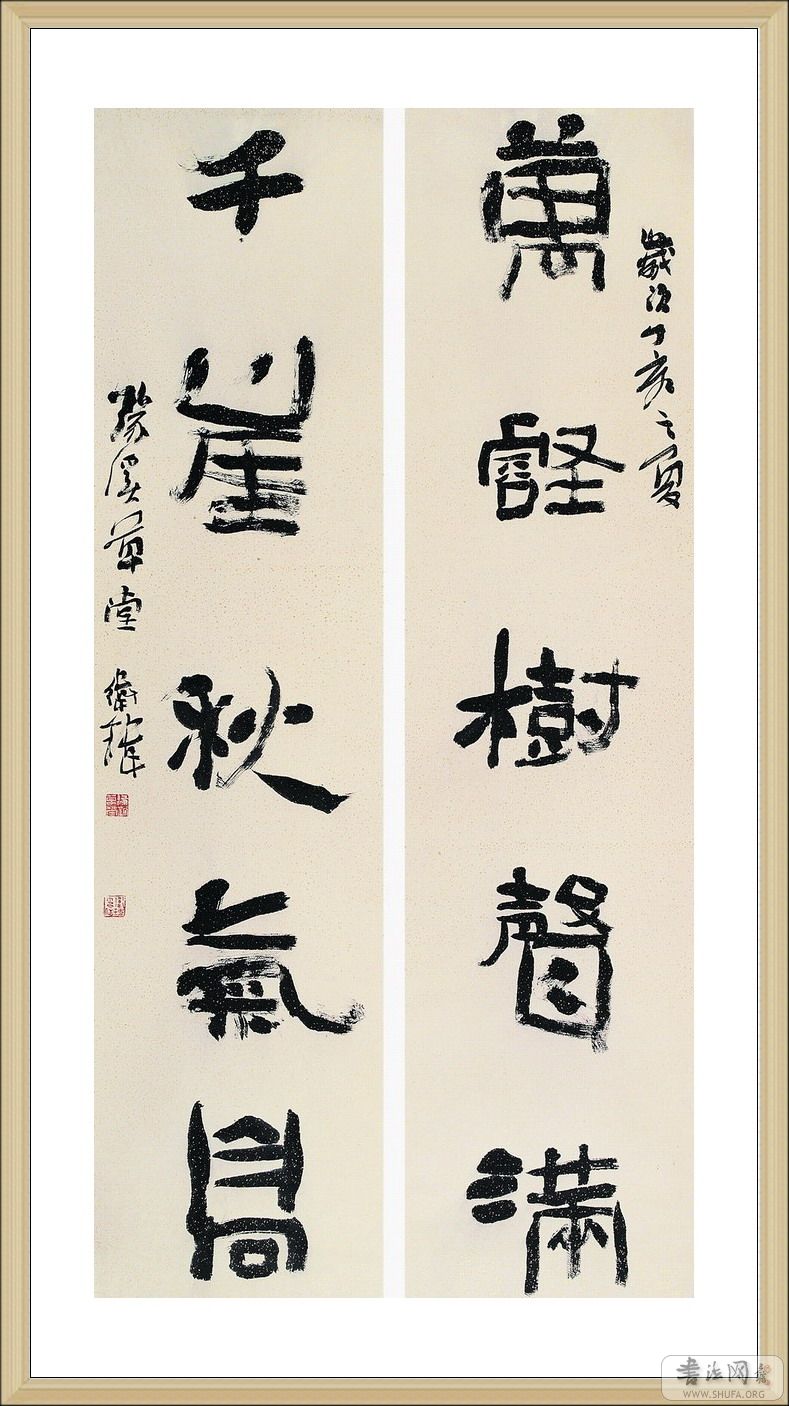 歲次丁亥之夏
萬壑樹聲滿
千崖秋氣高
溪草堂 衛雄
書法网
WWW.SHUFA.ORG